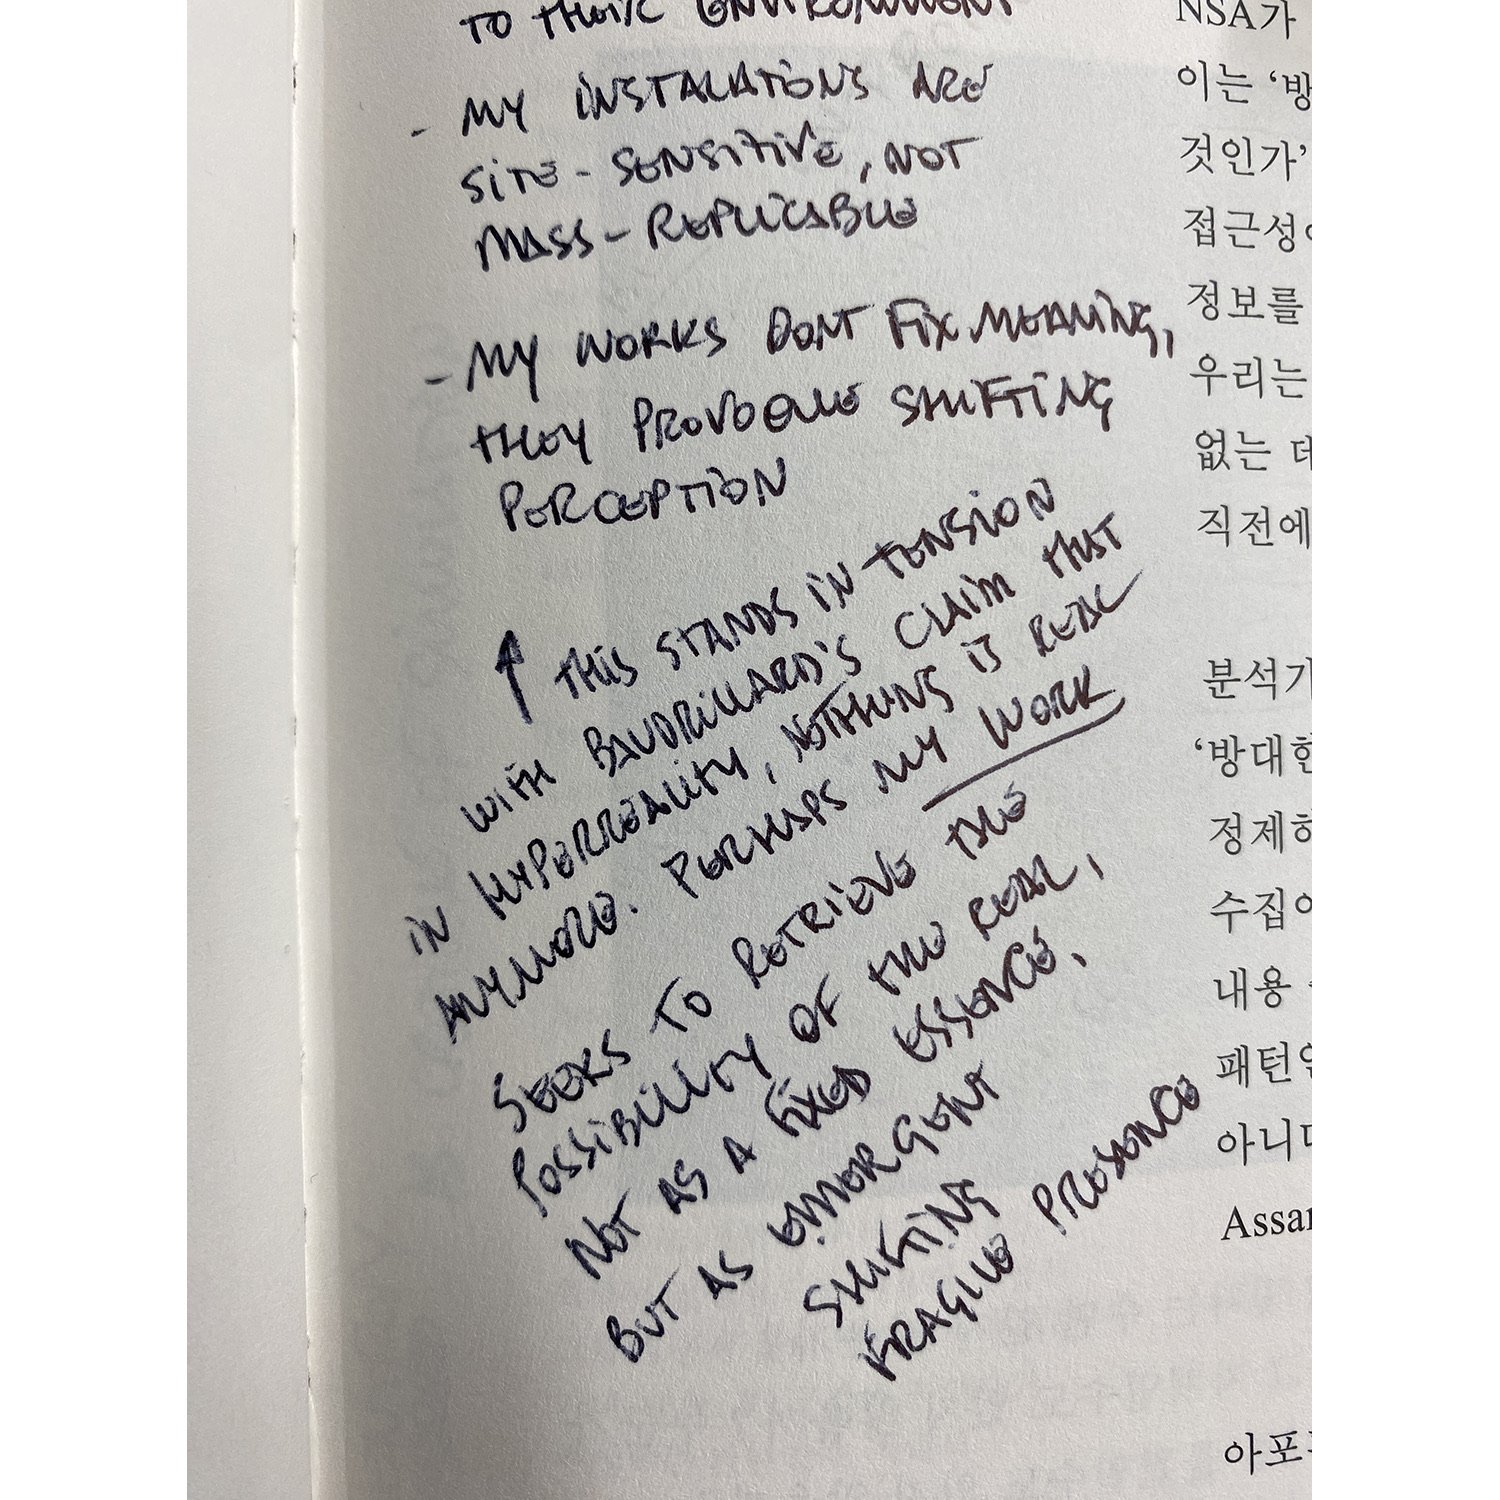 TO THEIR ENVIRONMENT
- MY INSTALATIONS ARE
SITE-SENSITIVE, NOT
MASS-REPLICABLE
- MY WORKS DONT FIX MEANING,
THEY PROVOQUE SHIFTING
PERCEPTION
↑ THIS STANDS IN TENSION
WITH BAUDRILLARD'S CLAIM THAT
IN HYPERREALITY, NOTHING IS REAL
ANYMORE. PERHAPS MY WORK
SEEKS TO RETRIEVE THE
POSSIBILITY OF THE REAL,
NOT AS A FIXED ESSENCE,
BUT AS EMERGENT
SHIFTING
FRAGILE PRESENCE
NSA가
이는 ‘방
것인가’
접근성
정보를
우리는
없는 데
직전에
분석가
‘방대한
정제하
수집
내용
패턴
아니
Assan
아포